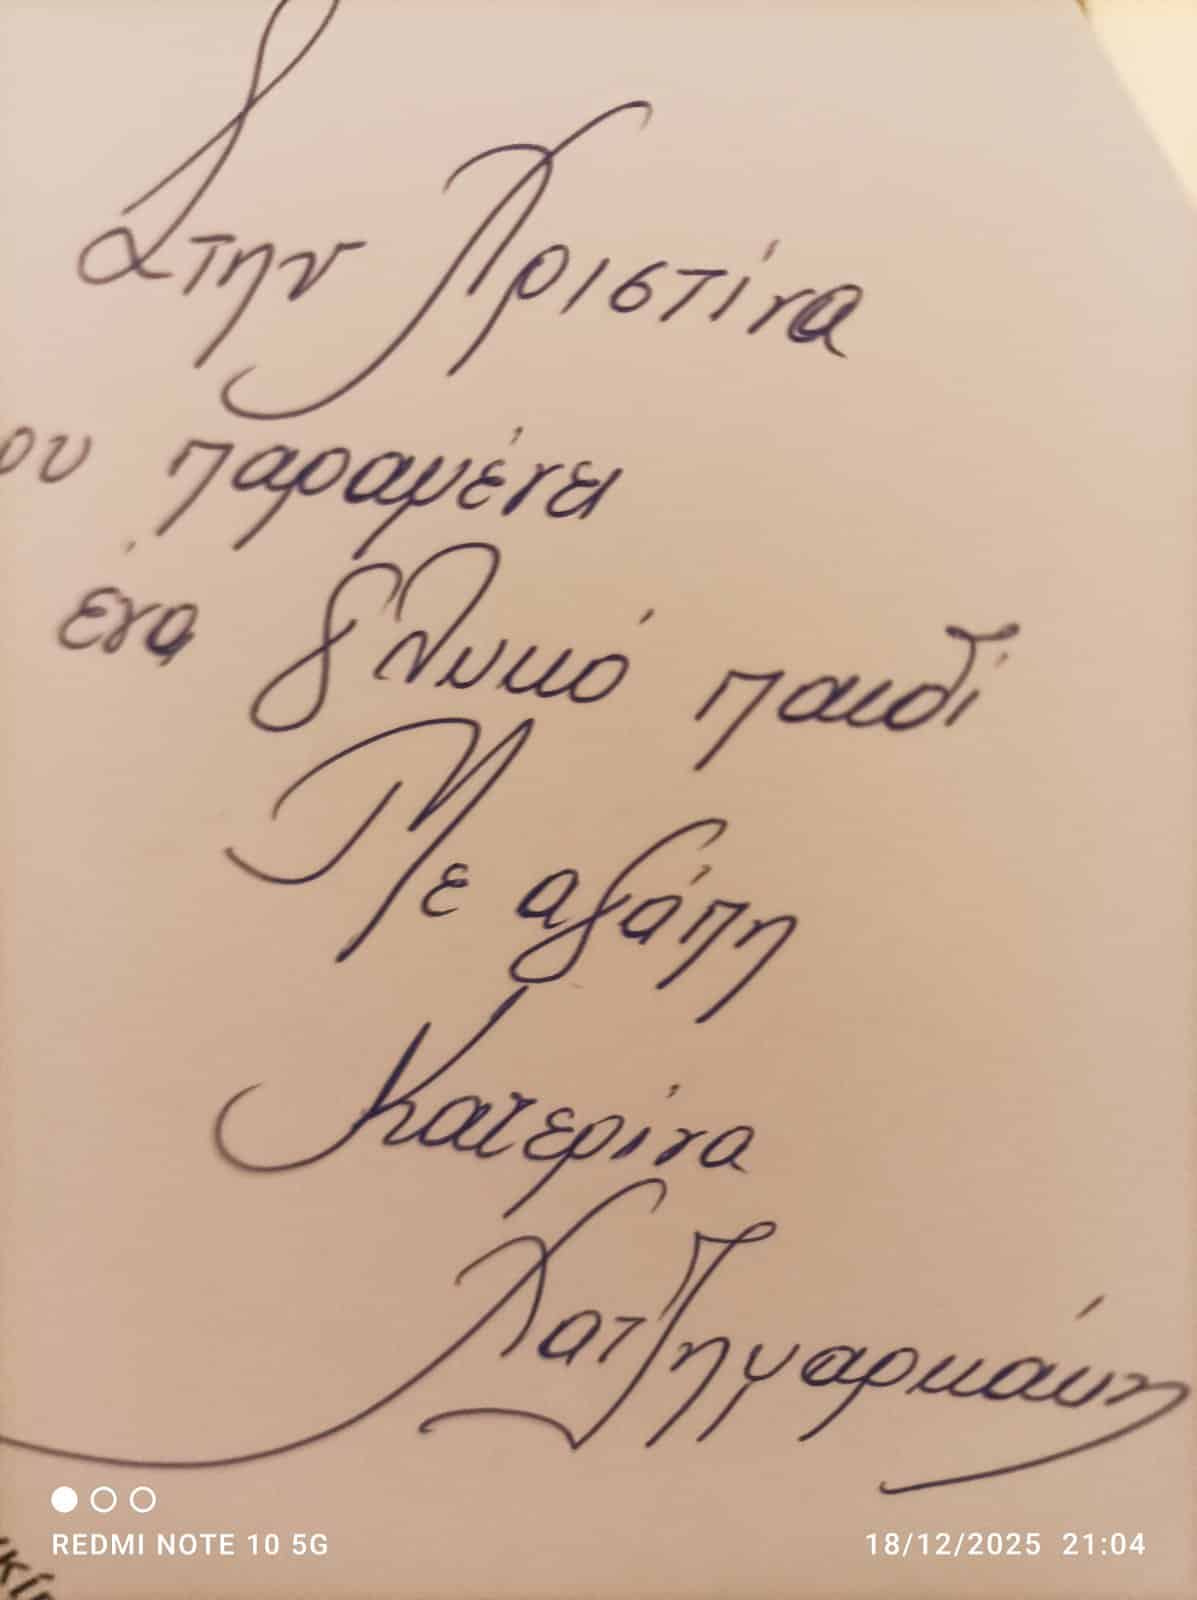 Στην Χριστίνα
ου παραμένει
ένα γλυκό παιδί
Με αγάπη
Κατερίνα
REDMI NOTE 10 5G
18/12/2025 21:04